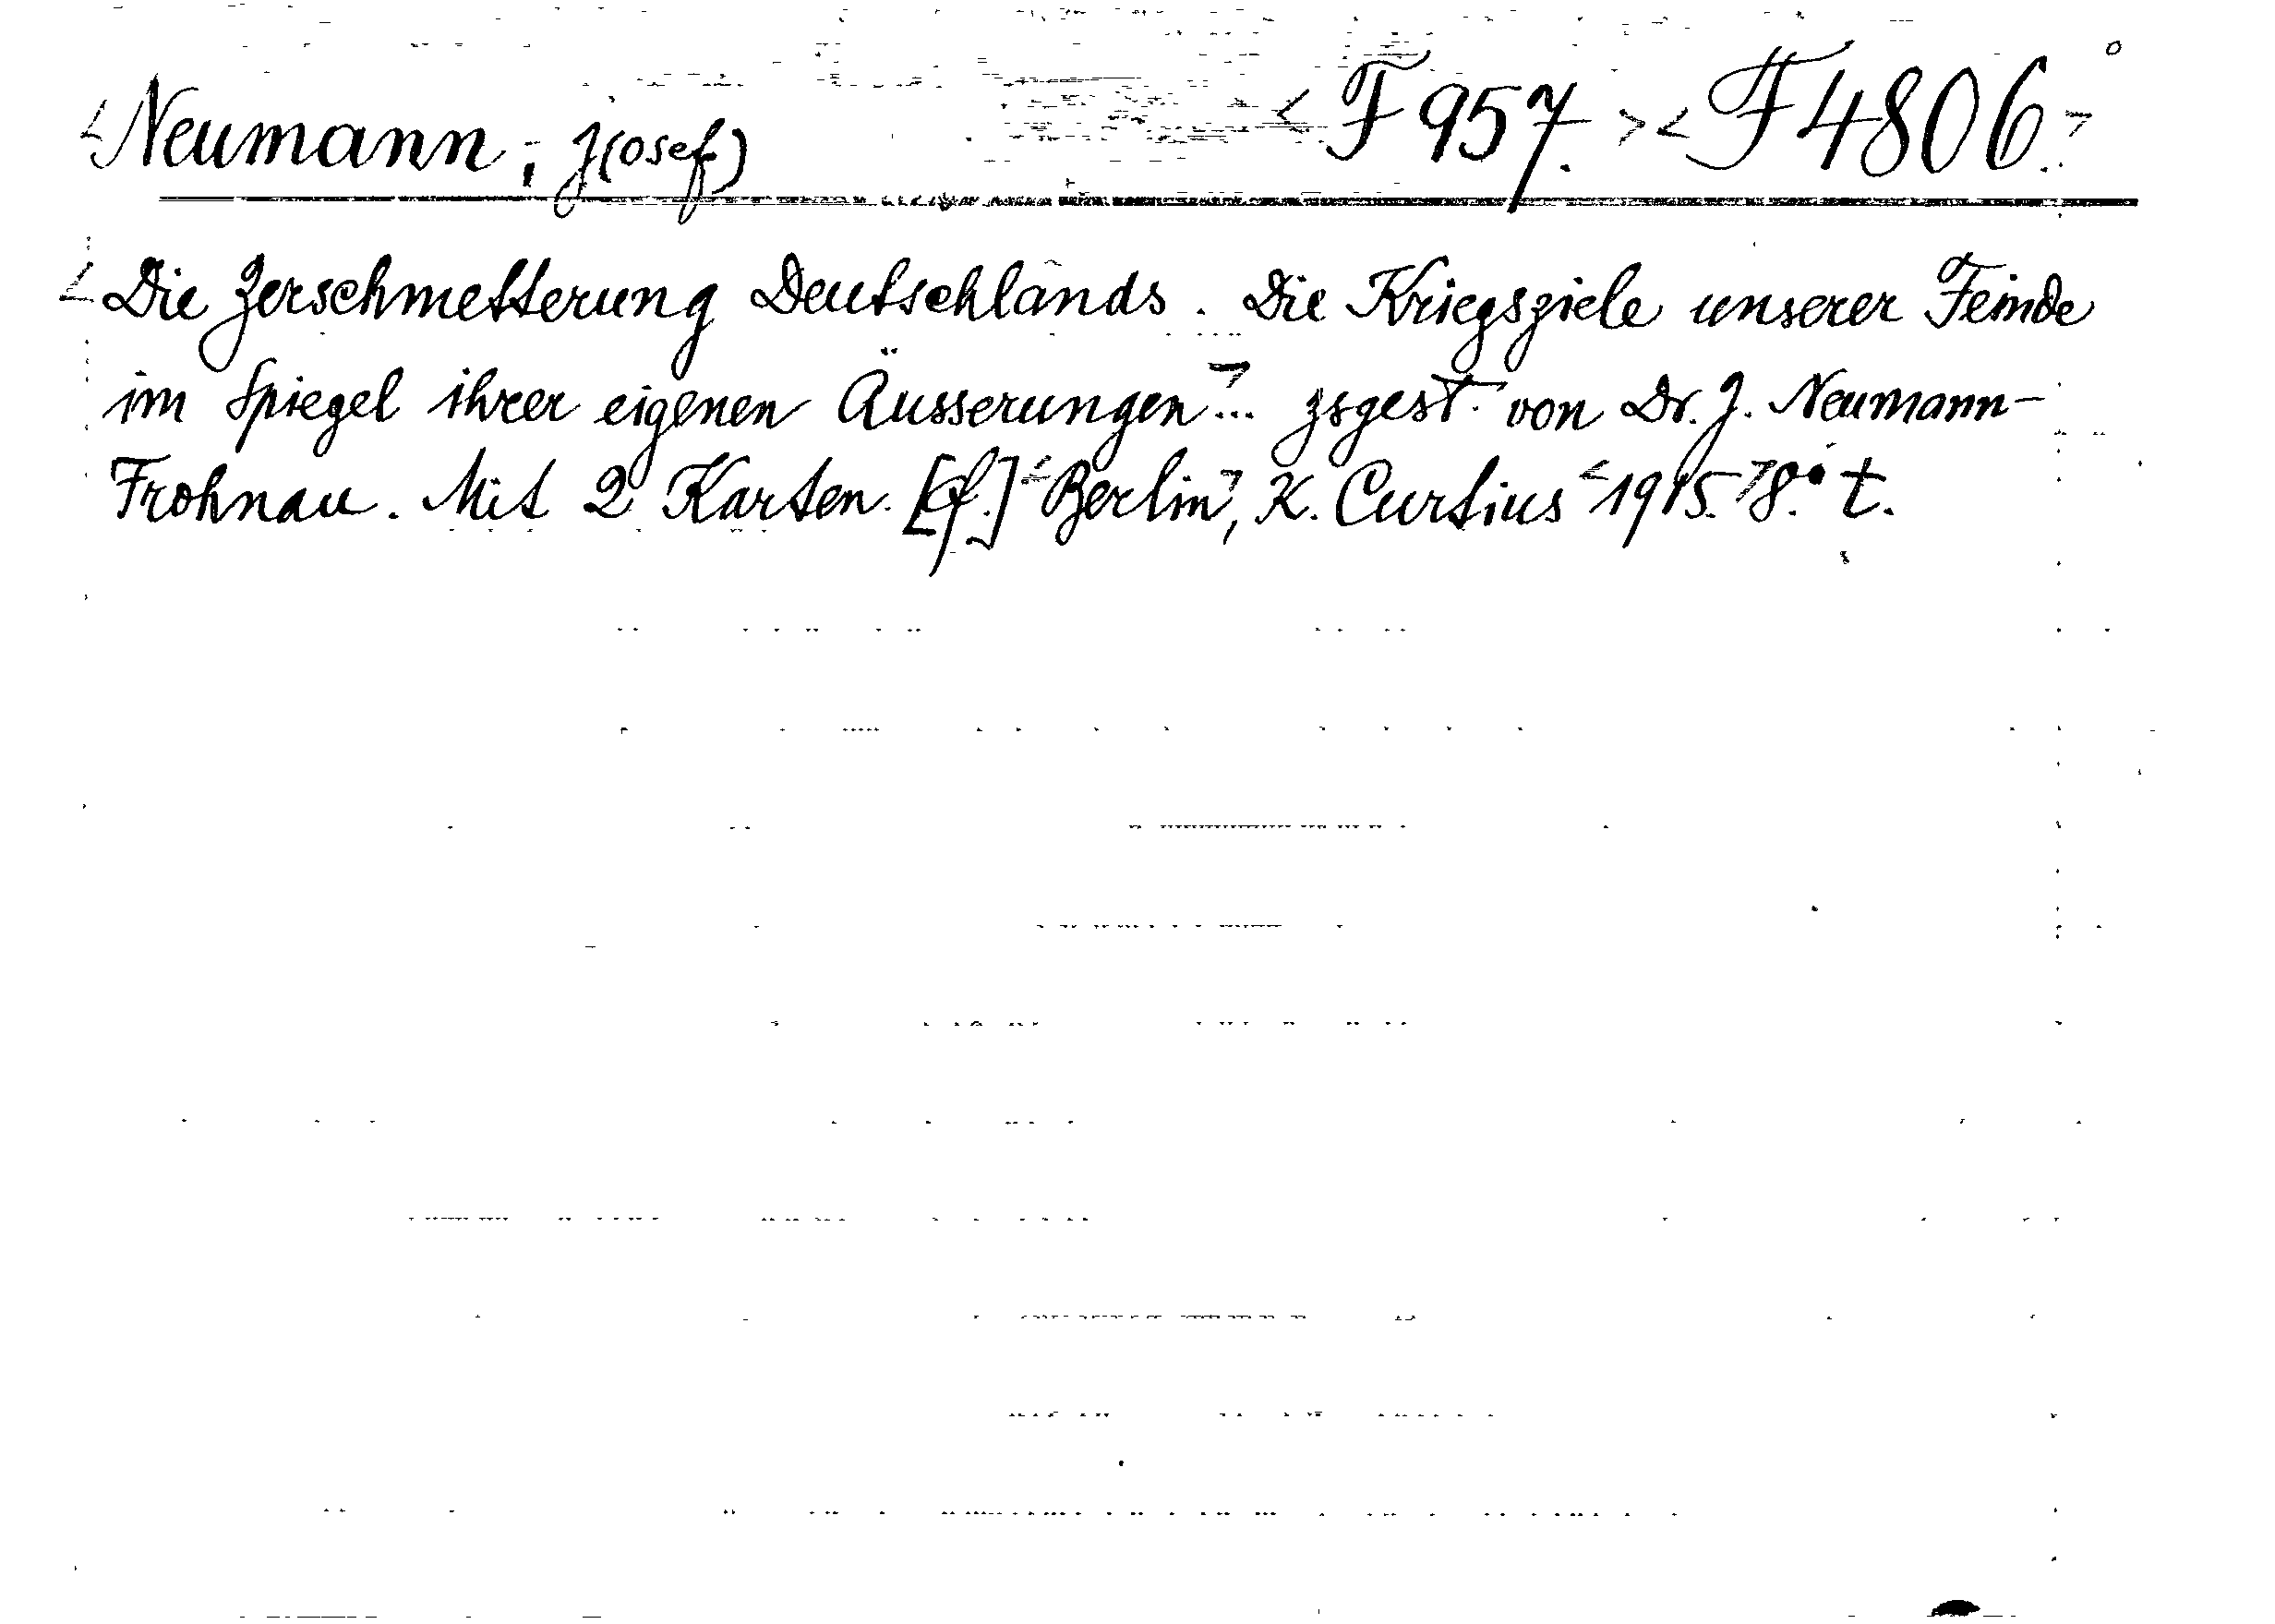 <Neumann, J(osef) <F 957.><F 4806.>
<Die Zerschmetterung Deutschlands. Die Kriegsziele unserer Feinde
im Spiegel ihrer eigenen Äusserungen>... zsgest. von Dr. J. Neumann-
Frohnau. Mit 2 Karten. [f.] <Berlin>, K. Curtius <1915.> 8.° t.